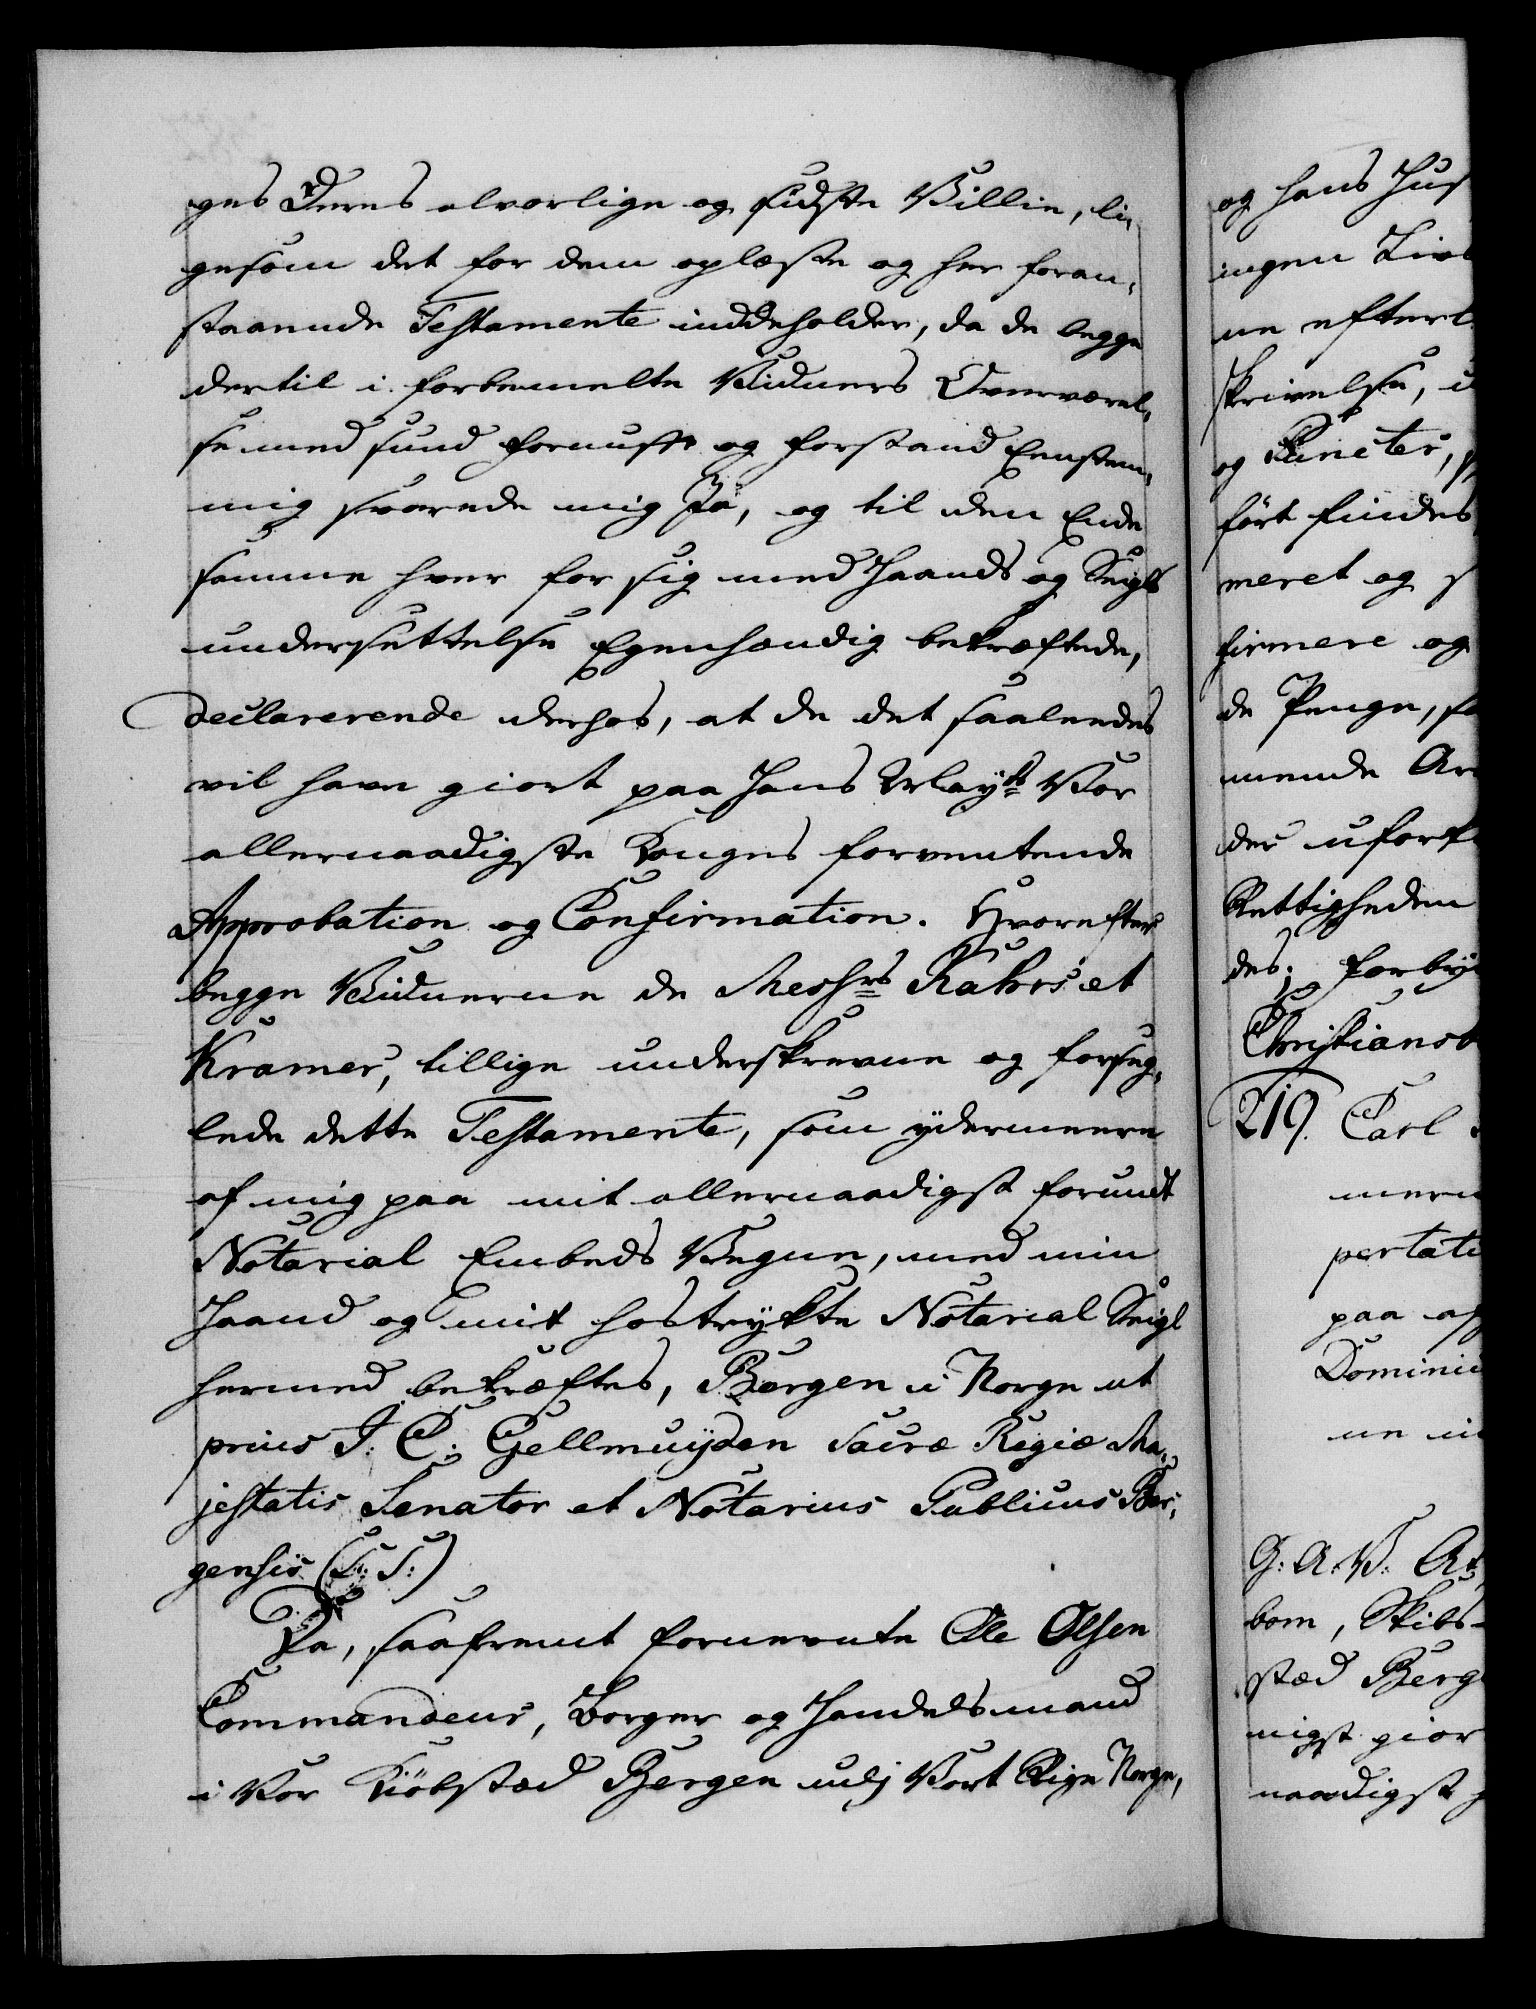 ges Deres alvorlige og sidste Villie, li„
gesom det for dem oplæste og her foran„
staaende Testamente inddeholder, da de begge
dertil i forbemelte Vidners Overværel„
se med sund Fornuft og Forstand Eenstem„
mig svarede mig Ja, og til den Ende
samme hver for sig med Haands og Seigls
undersættelse Egenhændig bekræftede,
declarerende derhos, at de det saaledes
vil have giort paa Hans Mayts Vor
allernaadigste Konges forventende
Approbation og Confirmation. Hvorefter
begge Vidnerne de Messrs Rahrs et
Kramer, tillige underskrevne og forseg„
lede dette Testamente, som ydermeere
af mig paa mit allernaadigst forundt
Notarial Embeds Vegne, med min
Haand og mit hostrykte Notarial Seigl
hermed bekræftes, Bergen i Norge ut
prius J: C: Gellmuyden Sacræ Regiæ Ma„
jestatis Senator et Notarius Publicus Ber„
gensis (L: S:)
Da, saafremt fornevnte Ole Olsen
Commandeur, Borger og Handelsmand
i Vor Kiöbstæd Bergen udj Vort Rige Norge,
og hans Hus
ingen Livs
ne efterl
skrivelse, i
og Puncter,
fört findes
meret og s
firmere og
de Penge, so
mende Ar
der ufork
Rettigheden
des; forby
Christiansb
219. Carl
mere
pertati
paa af
Dominic
ne in
G: A: V: At
bom, Skibs-
stæd Berg
nigst gior
naadigst